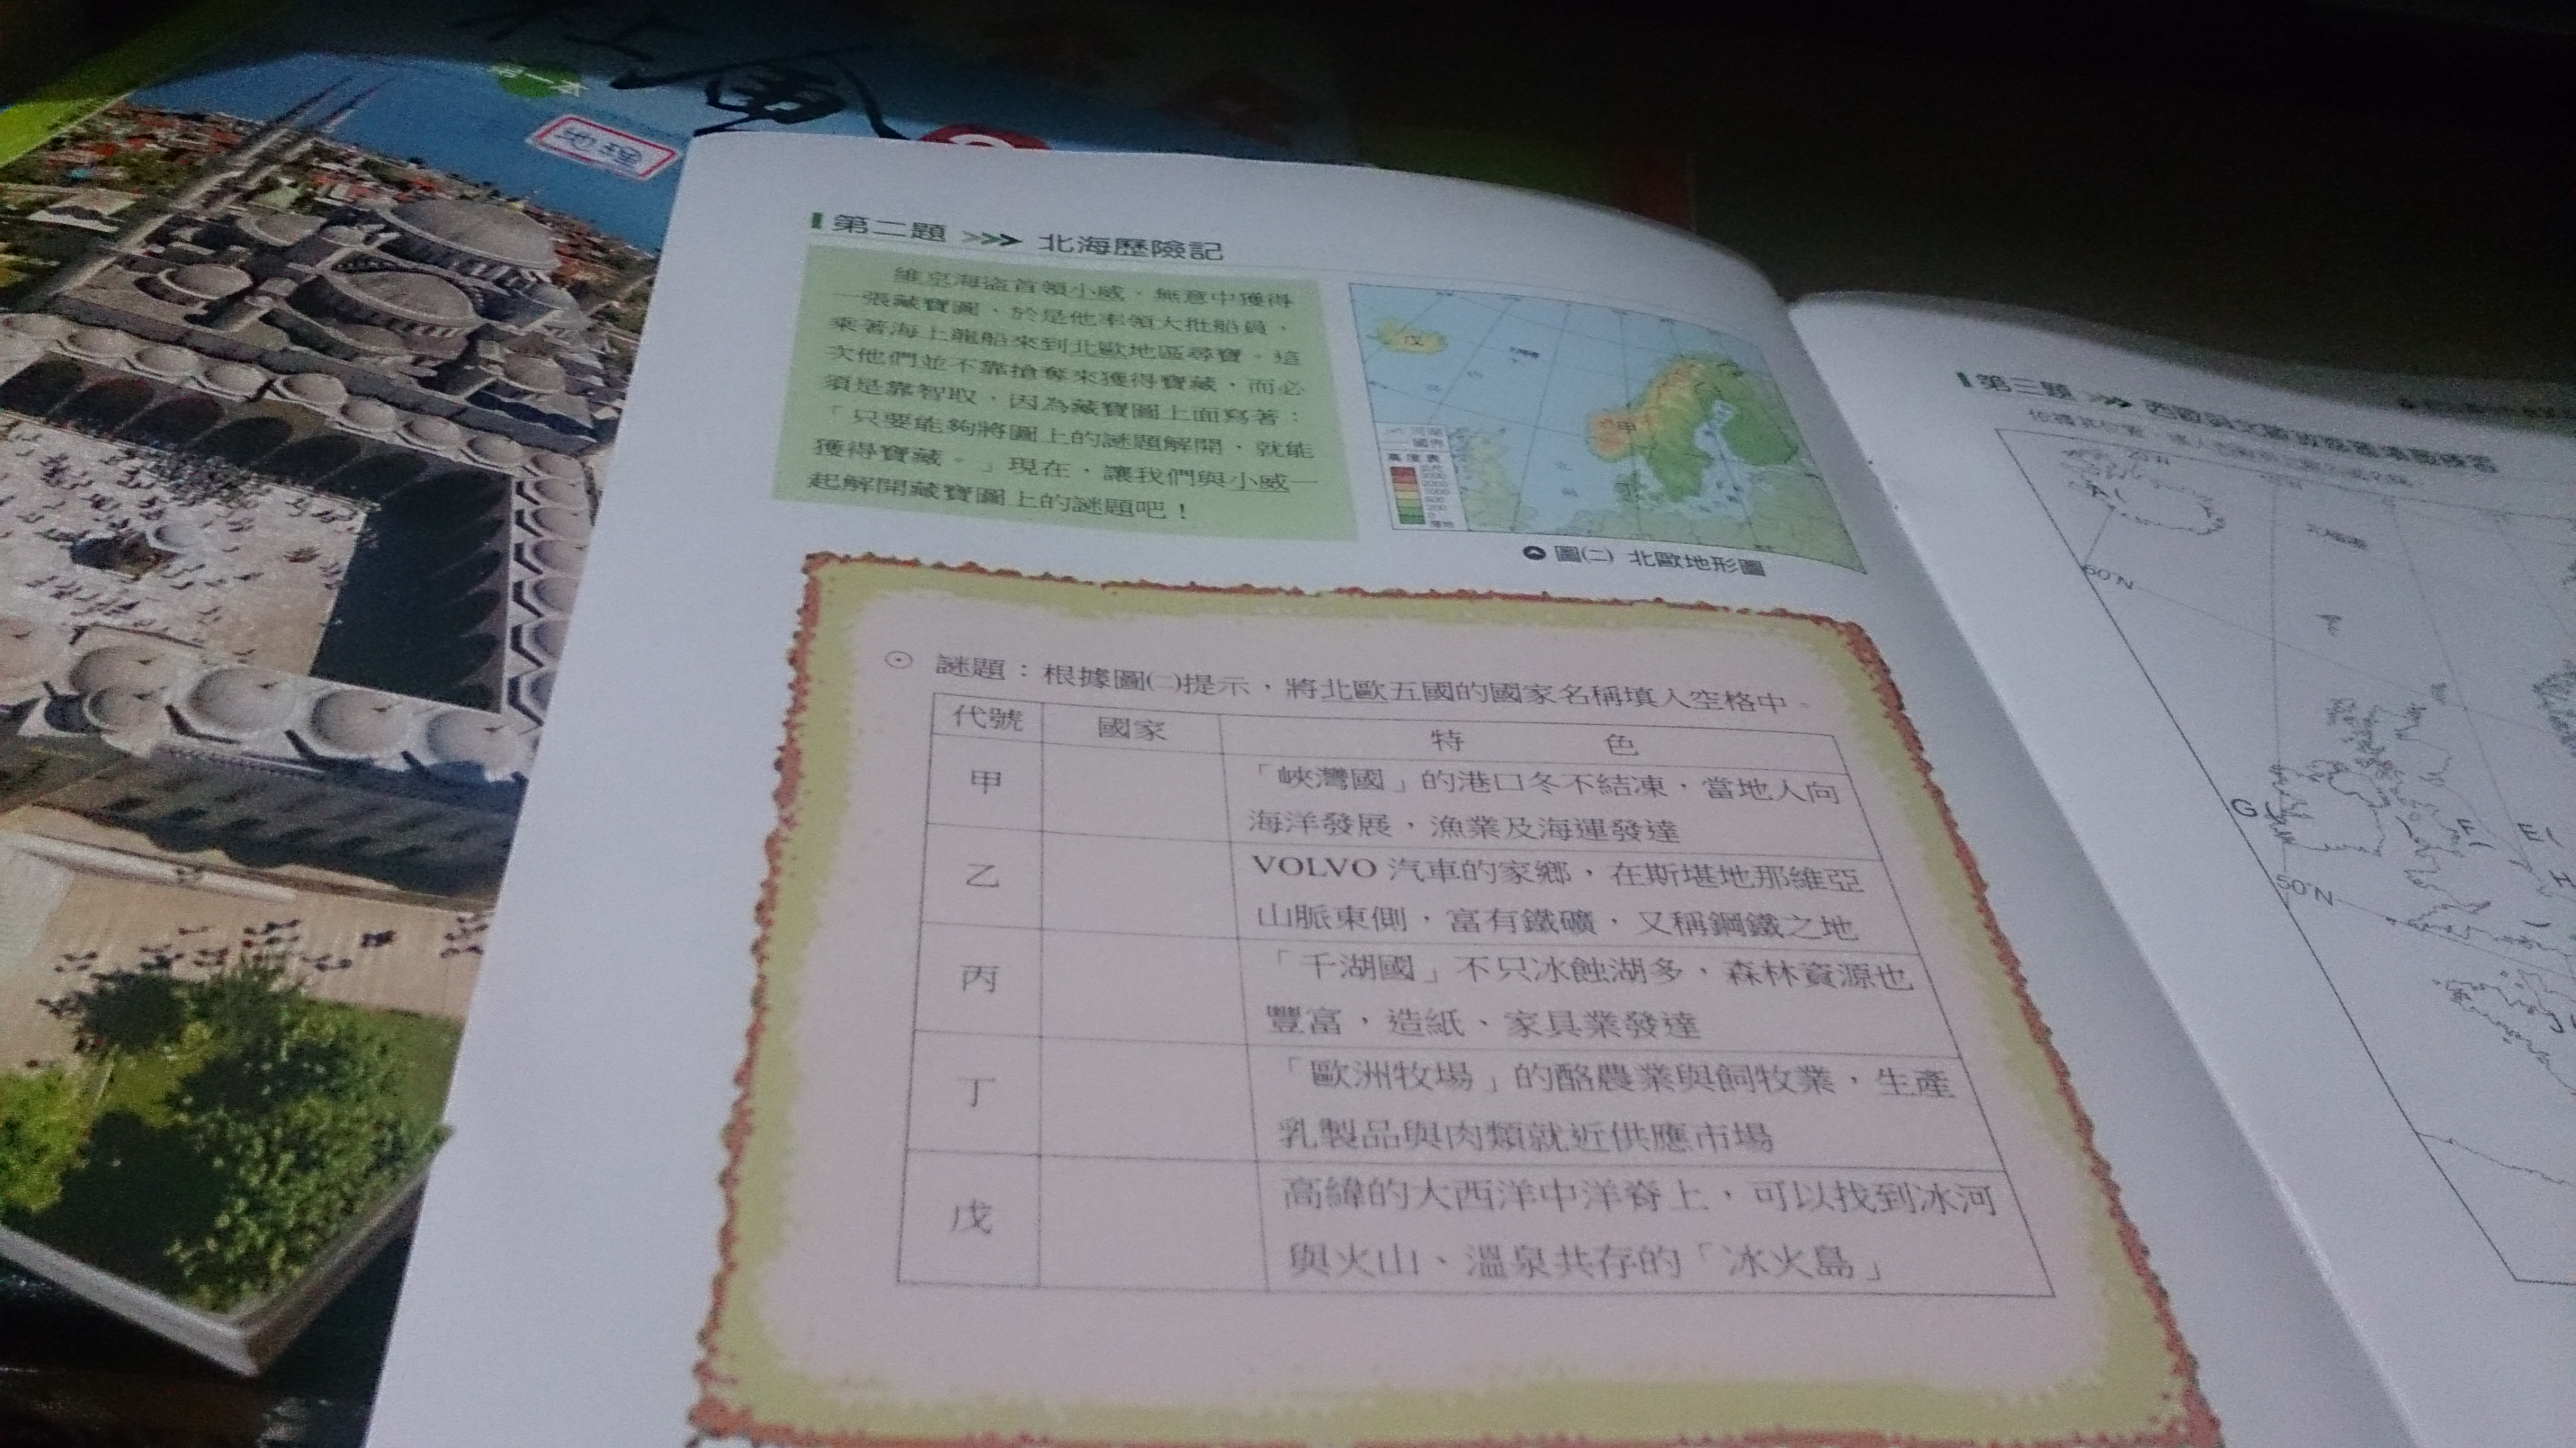 社會
第一本
地理
第二題 >>> 北海歷險記
維京海盜首領小威，無意中獲得
一張藏寶圖，於是他率領大批船員，
乘著海上龍船來到北歐地區尋寶。這
次他們並不靠搶奪來獲得寶藏，而必
須是靠智取，因為藏寶圖上面寫著：
「只要能夠將圖上的謎題解開，就能
獲得寶藏。」現在，讓我們與小威一
起解開藏寶圖上的謎題吧！
戊
甲
丁
河湖
國界
高度表
圖(二) 北歐地形圖
⊙ 謎題：根據圖(二)提示，將北歐五國的國家名稱填入空格中。
代號 國家 特 色
甲 「峽灣國」的港口冬不結凍，當地人向
海洋發展，漁業及海運發達
乙 VOLVO 汽車的家鄉，在斯堪地那維亞
山脈東側，富有鐵礦，又稱鋼鐵之地
丙 「千湖國」不只冰蝕湖多，森林資源也
豐富，造紙、家具業發達
丁 「歐洲牧場」的酪農業與飼牧業，生產
乳製品與肉類就近供應市場
戊 高緯的大西洋中洋脊上，可以找到冰河
與火山、溫泉共存的「冰火島」
第三題 >>>
20°W
A(
60°N
G(
F(
E(
H
50°N